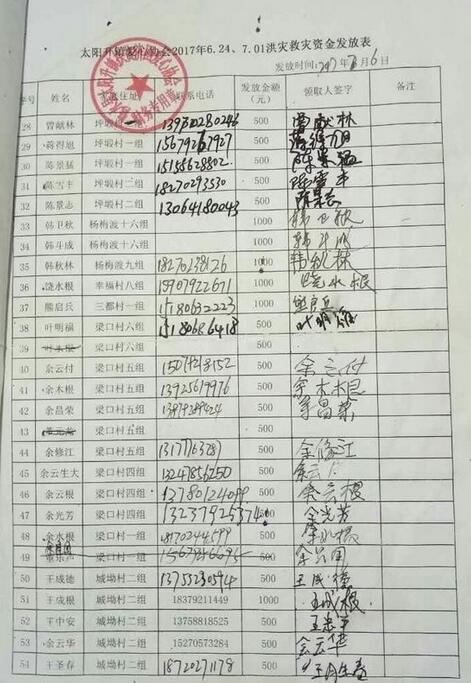 太阳升镇爱心协会2017年6.24、7.01洪灾救灾资金发放表
发放时间: 2017 月 6 日
序号 姓名 家庭住址 联系电话 发放金额(元) 领取人签字 备注
28 曾献林 坪塅村一组 13970280246 500 曾献林
29 蒋得旭 坪塅村一组 500
30 陈景猛 坪塅村一组 15158628802 500 陈景猛
31 陈雪丰 坪塅村二组 18270293530 500 陈雪丰
32 陈景志 坪塅村二组 13064180043 500 陈景志
33 韩卫秋 杨梅渡十六组 1000 韩卫秋
34 韩斗成 杨梅渡十六组 1000 韩斗成
35 韩秋林 杨梅渡九组 18270238126 1000 韩秋林
36 饶水根 幸福村八组 15907922671 1000 饶水根
37 熊启兵 三都村一组 15180632223 1000 熊启兵
38 叶明福 梁口村六组 15180686418 500 叶明福
39 梁口村六组 500
40 余云付 梁口村五组 500 余云付
41 余木根 梁口村五组 13925619976 500 余木根
42 余昌荣 梁口村五组 13879289424 500 余昌荣
43 梁口村五组 500
44 余修江 梁口村五组 500 余修江
45 余云生大 梁口村四组 13247856250 500
46 余云根 梁口村四组 500 余云根
47 余光芳 梁口村四组 13237925374 500 余光芳
48 余水根 梁口村一组 18170244599 500 余水根
49 梁口村一组 500
50 王成德 城坳村二组 500
51 王成根 城坳村二组 18379211449 1000 王成根
52 王中安 城坳村二组 13758818525 500
53 余云华 城坳村二组 15270573284 500 余云华
54 王圣春 城坳村二组 18720271178 500